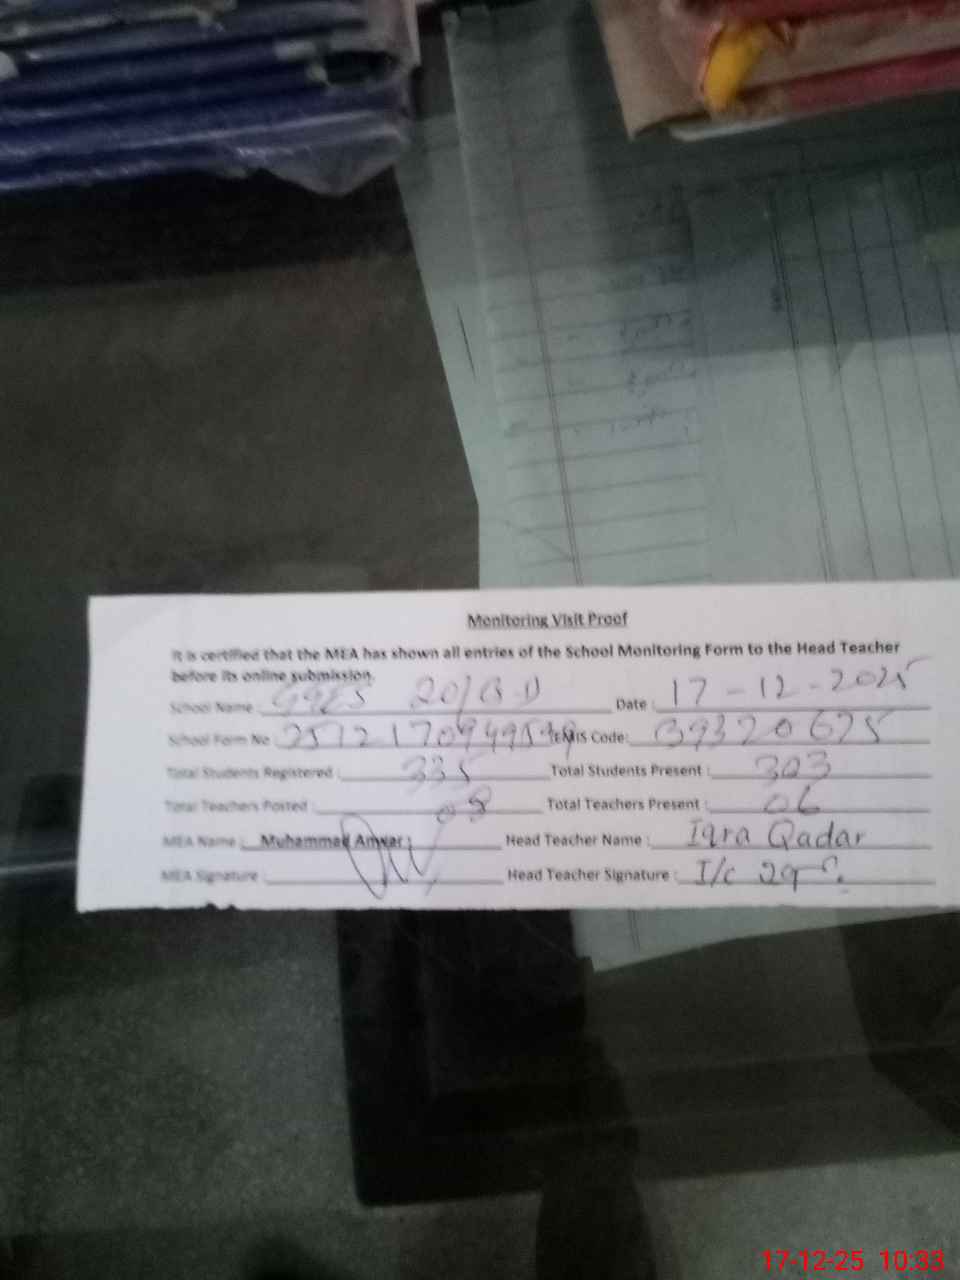 Monitoring Visit Proof
It is certified that the MEA has shown all entries of the School Monitoring Form to the Head Teacher
before its online submission.
School Name : GGES 20/GD Date : 17-12-2025
School Form No : EMIS Code: 39320675
Total Students Registered : 335 Total Students Present : 303
Total Teachers Posted : 08 Total Teachers Present : 06
MEA Name : Muhammad Anwar Head Teacher Name : Iqra Qadar
MEA Signature : Head Teacher Signature : I/c
17-12-25 10:33